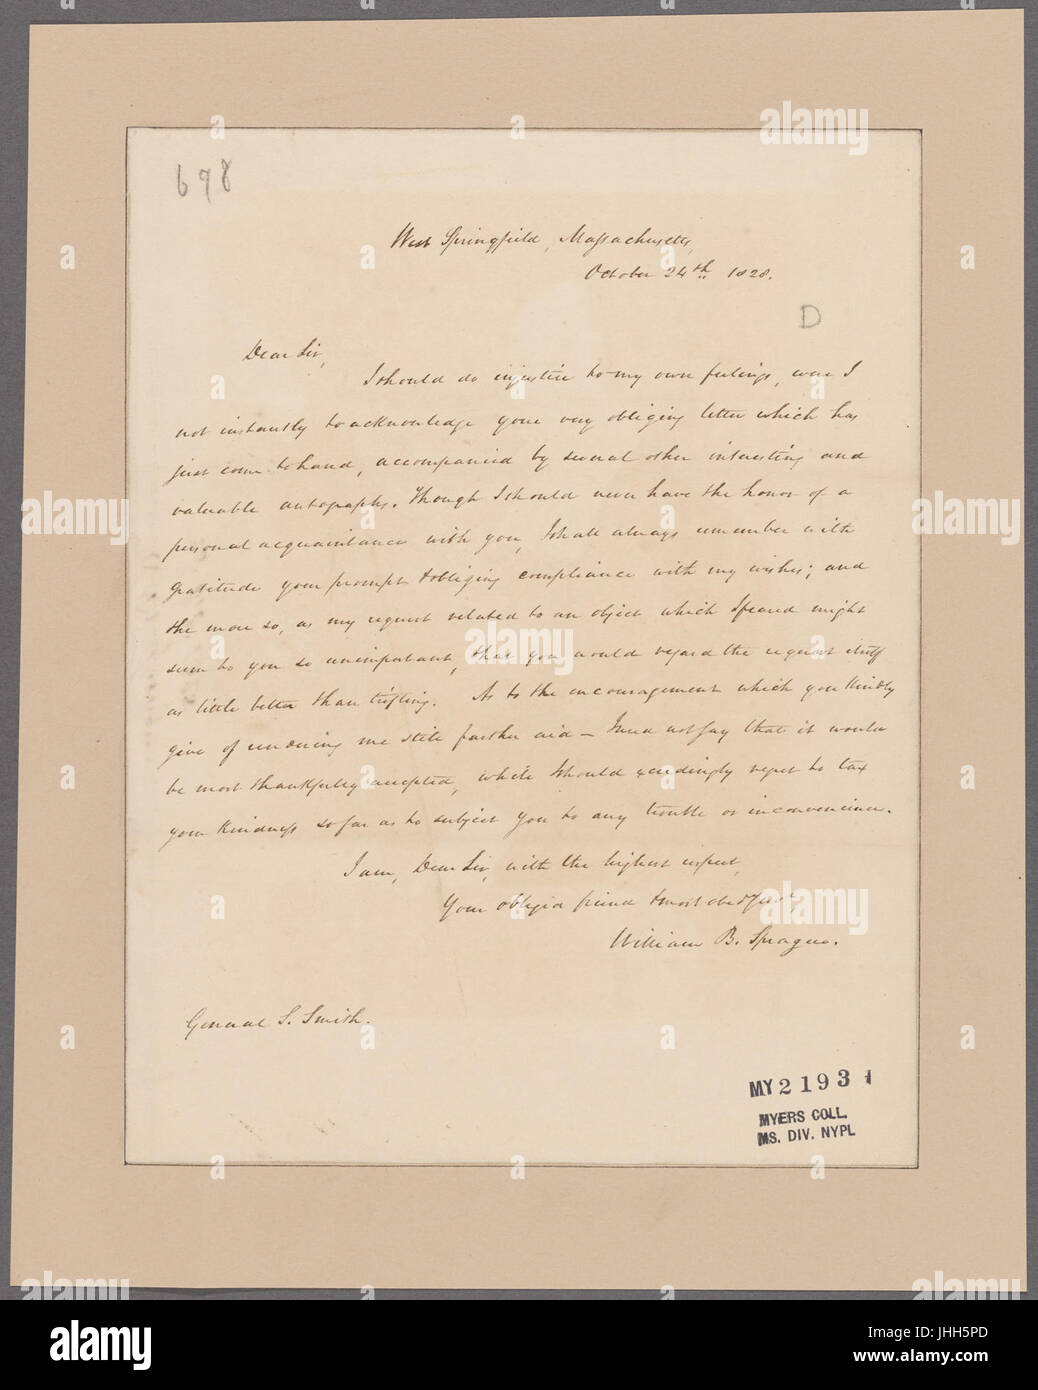 678
West Springfield, Massachusetts,
October 24th 1828.
D
Dear Sir,
I should do injustice to my own feelings, were I
not instantly to acknowledge your very obliging letter which has
just come to hand, accompanied by several other interesting and
valuable autographs. Though I should never have the honor of a
personal acquaintance with you, I shall always remember with
gratitude your prompt & obliging compliance with my wishes; and
the more so, as my request related to an object which I feared might
seem to you so unimportant, that you would regard the request itself
as little better than trifling. As to the encouragement which you kindly
give of rendering me still farther aid – I need not say that it would
be most thankfully accepted, while I should exceedingly regret to tax
your kindness so far as to subject you to any trouble or inconvenience.
I am, Dear Sir, with the highest respect,
Your obliged friend & most obedt Servt,
William B. Sprague.
General S. Smith.
MY 2 193 1
MYERS COLL.
MS. DIV. NYPL
alamy
a
alamy
Image ID: JHH5PD
www.alamy.com